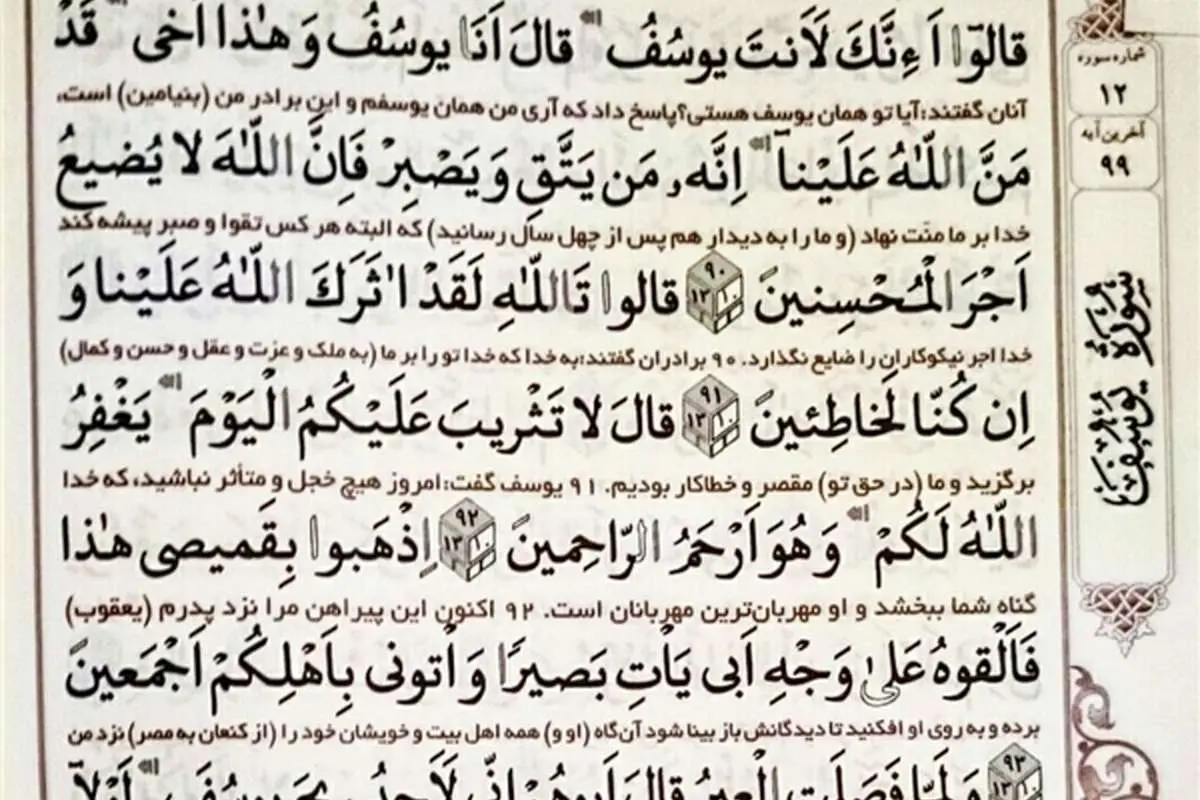 قالوٓا اَءِنَّكَ لَاَنتَ يوسُفُ قالَ اَنَا يوسُفُ وَ هٰذا اَخى قَدْ
آنان گفتند: آیا تو همان یوسف هستی؟ پاسخ داد که آری من همان یوسفم و این برادر من (بنیامین) است،
مَنَّ اللّٰهُ عَلَيْنآ اِنَّه مَن يَتَّقِ وَ يَصْبِرْ فَاِنَّ اللّٰهَ لا يُضيعُ
خدا بر ما منّت نهاد (و ما را به دیدار هم پس از چهل سال رسانید) که البته هر کس تقوا و صبر پیشه کند
اَجْرَ الْمُحْسِنينَ ۹۰ قالوا تَاللّٰهِ لَقَدْ اٰثَرَكَ اللّٰهُ عَلَيْنا وَ
خدا اجر نیکوکاران را ضایع نگذارد. ۹۰ برادران گفتند: به خدا که خدا تو را بر ما (به ملک و عزت و عقل و حسن و کمال)
اِن كُنّا لَخاطِئينَ ۹۱ قالَ لا تَثْريبَ عَلَيْكُمُ الْيَوْمَ يَغْفِرُ
برگزید و ما (در حق تو) مقصر و خطاکار بودیم. ۹۱ یوسف گفت: امروز هیچ خجل و متأثر نباشید، که خدا
اللّٰهُ لَكُمْ وَ هُوَ اَرْحَمُ الرّاحِمينَ ۹۲ اِذْهَبوا بِقَميصى هٰذا
گناه شما ببخشد و او مهربان‌ترین مهربانان است. ۹۲ اکنون این پیراهن مرا نزد پدرم (یعقوب)
فَاَلْقوهُ عَلىٰ وَجْهِ اَبى يَأْتِ بَصيرًا وَ أْتونى بِاَهْلِكُمْ اَجْمَعينَ
برده و به روی او افکنید تا دیدگانش باز بینا شود آن‌گاه (او و) همه اهل بیت و خویشان خود را (از کنعان به مصر) نزد من
۹۳ وَ لَمّا فَصَلَتِ الْعيرُ قالَ اَبوهُمْ اِنّى لَاَجِدُ ريحَ يوسُفَ لَوْلآ
شماره سوره
۱۲
آخرین آیه
۹۹
سُورَةُ يُوسُف